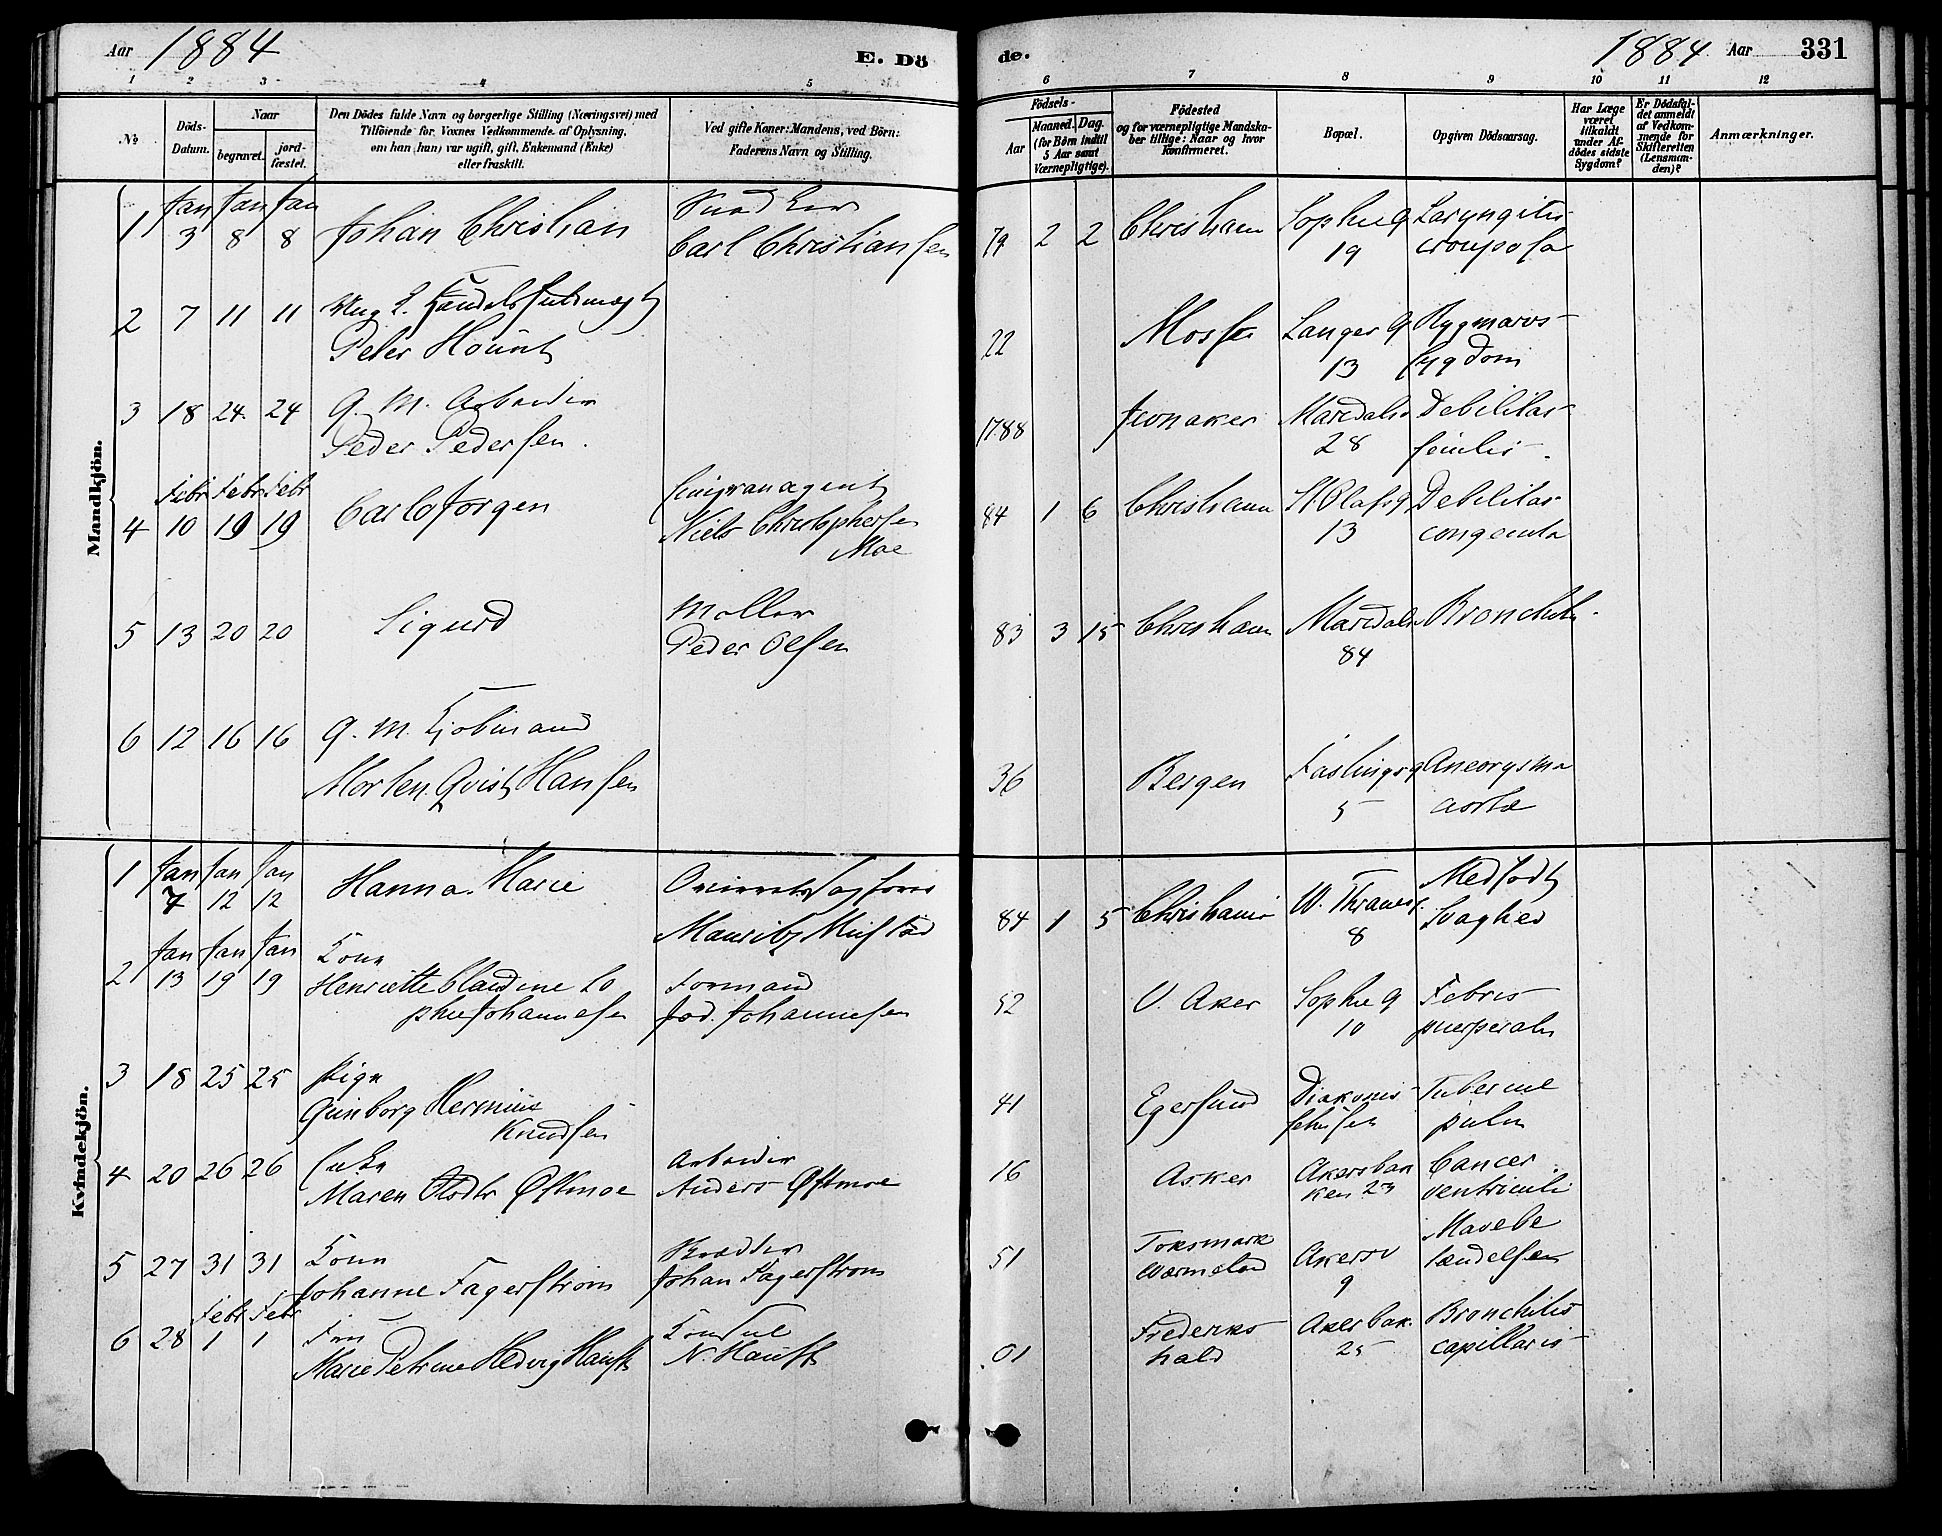 Aar 1884 E. Dö
1 2 3 4 5
No.
Döds-Datum.
Naar
begravet.
jordfæstet.
Den Dödes fulde Navn og borgerlige Stilling (Næringsvei) med
Tilföiende for Voxnes Vedkommende af Oplysning,
om han (hun) var ugift, gift, Enkemand (Enke)
eller fraskilt.
Ved gifte Koner: Mandens, ved Börn:
Faderens Navn og Stilling.
de. 1884 Aar 331
6 7 8 9 10 11 12
Födsels-
Aar
Maaned. Dag.
(for Börn indtil
5 Aar samt
Værnepligtige).
Födested
og for værnepligtige Mandskaber tillige: Naar og hvor
Konfirmeret.
Bopæl.
Opgiven Dödsaarsag.
Har Læge
været
tilkaldt
under Afdödes sidste
Sygdom?
Er Dödsfaldet anmeldt
af Vedkommende for
Skifteretten
(Lensmanden)?
Anmærkninger.
Mandkjön.
Jan Jan Jan
1 3 8 8 Johan Christian
Carl Christiansen
79 2 2 Christiania Sophieg Laryngitis
19 crouposa
2 7 11 11
Peter
22 Moss Langes G Rygmarvs-
13 sygdom
3 18 24. 24 G. M. Arbeider
Peder Pedersen.
1788 Jevnaker Maridalsv Debilitas
28 senilis.
Febr Febr Febr
4 10 19 19 Carl Jörgen
Niels Christophersen
Moe
84 1 6 Christiania St Olafsg Debilitas
13 congenita
5 13 20 20 Sigurd Möller
Peder Olsen
83 3 15 Christiania Maridalsv Bronchitis
84
6 12 16 16 G. M. Kjöbmand
Morten Qvist Hansen
36 Bergen 5 Aneorysma
aortæ
Kvindekjön.
Jan Jan Jan
1 7 12 12 Hanna Marie
Mauritz
84 1 5 Christiania W. Thranesg. Medfödt
8 Svaghed
Jan Jan Jan
2 13 19 19 Kone
Henriette Claudine So
phie Johannesen
Formand
Johannesen
52 V. Aker Sophieg Febris
10 puerperalis
3 18 25 25 Pige
Gunborg Hermine
Knudsen
41 Egersund Diakonis
sehusen Tubercul
pulm
4 20 26 26 Enke
Maren Östmoe
Arbeider
Anders Östmoe
16 Asker Akersbak
ken 23 Cancer
ventriculi
5 27 31 31 Kone
Johanne Fagerström
Skrædder
Johan Fagerström
51 Akersv
9 Mavebe
tændelsen
Febr Febr
6 28 1 1 Fru
Marie Petrine Hedvig
Konsul
N.
01 Frederiks
hald Akerbak.
25 Bronchitis
capillaris